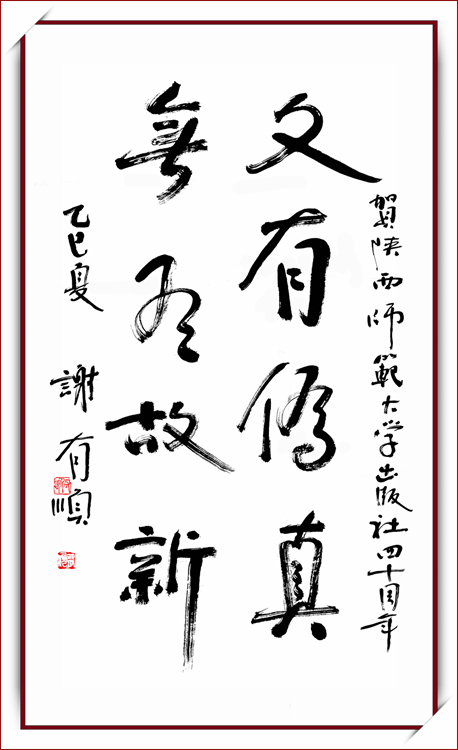 賀陕西師範大学出版社四十周年
文有偽真
無有故新
乙巳夏
謝有順